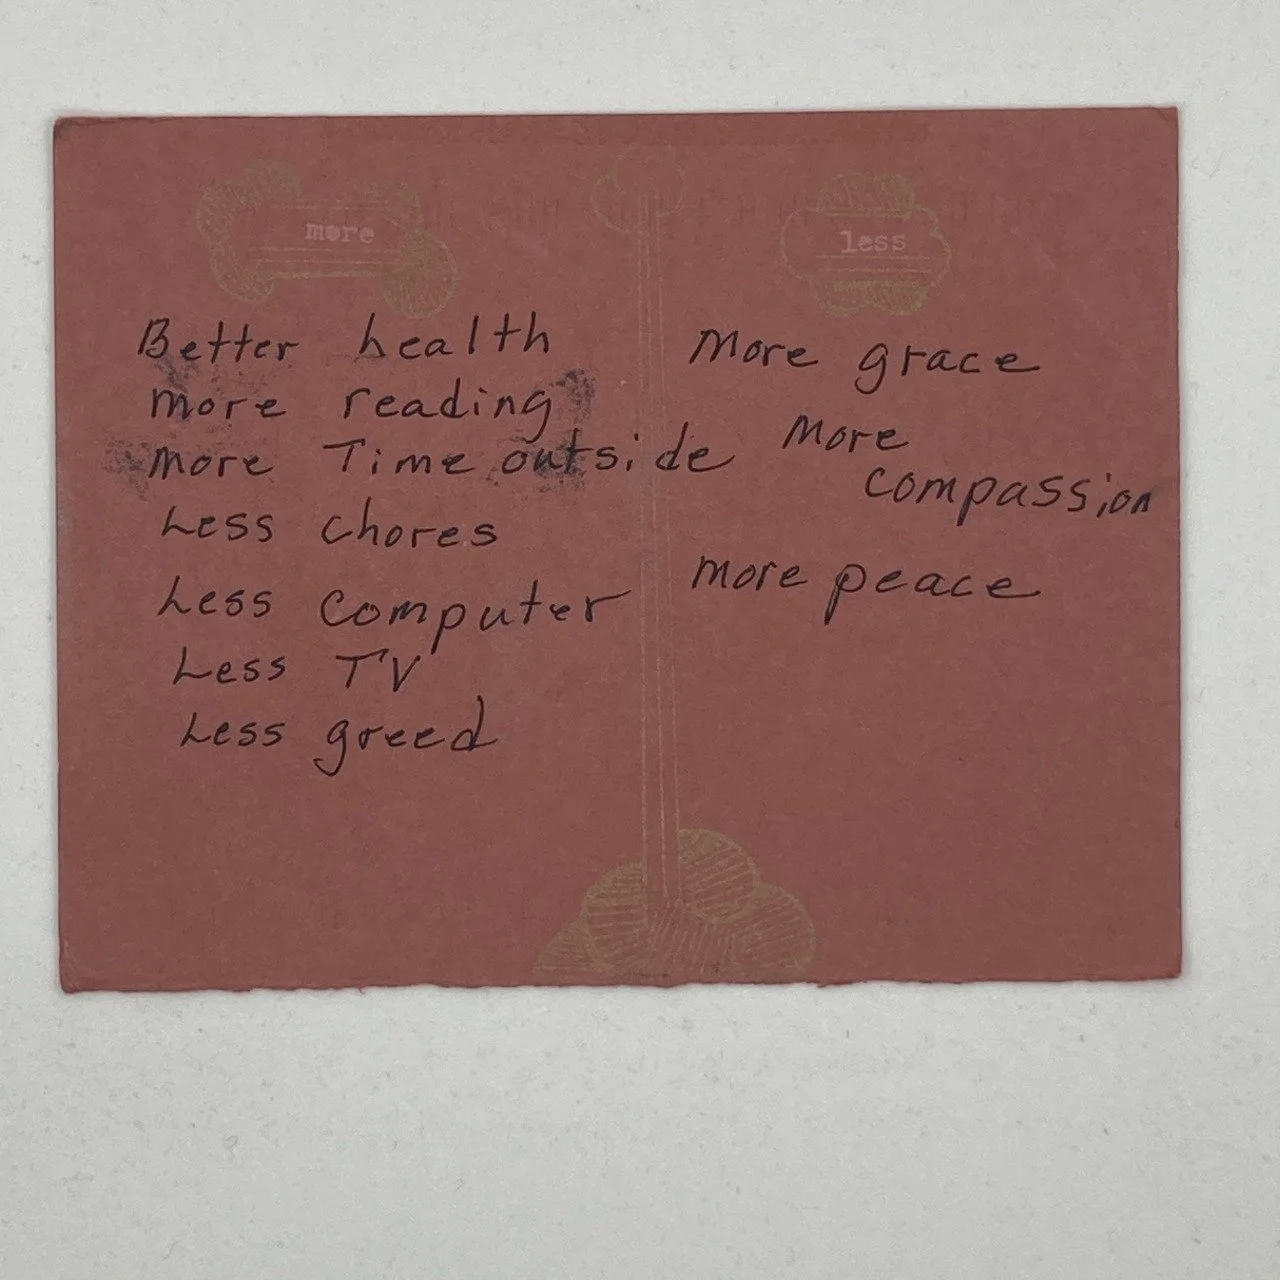 more
Better health
more reading
more Time outside
Less chores
Less computer
Less TV
Less greed
less
More grace
More
compassion
more peace